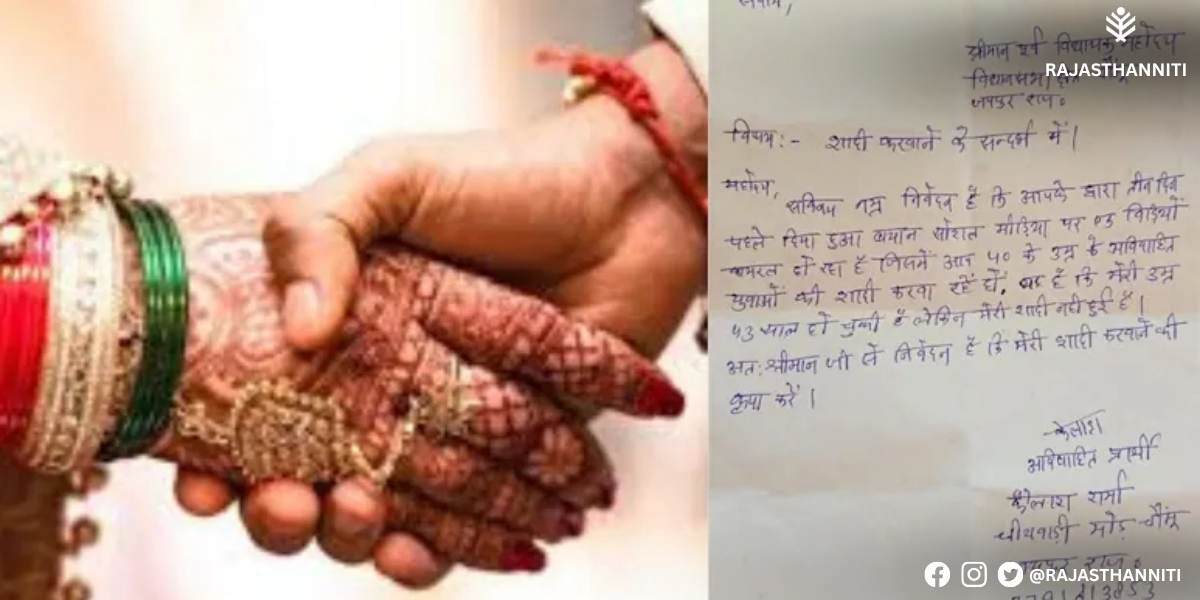 सेवामें,
श्रीमान पूर्व विधायक महोदय
RAJASTHANNITI
विधानसभा क्षेत्र
जयपुर राज०
विषय:- शादी करवाने के सन्दर्भ में।
महोदय,
सविनय नम्र निवेदन है कि आपके द्वारा तीन दिन
पहले दिया हुआ बयान सोशल मीडिया पर एक विडियो
वायरल हो रहा है जिसमें आप 40 के उम्र के अविवाहित
युवाओं की शादी करवा रहें हों, यह है कि मेरी उम्र
43 साल हो चुकी है लेकिन मेरी शादी नहीं हुई है।
अत: श्रीमान जी से निवेदन है कि मेरी शादी करवाने की
कृपा करें।
कैलाश
अविवाहित प्रार्थी
कैलाश शर्मा
चीथवाड़ी मोड़ चौमू
जयपुर राज.
@RAJASTHANNITI